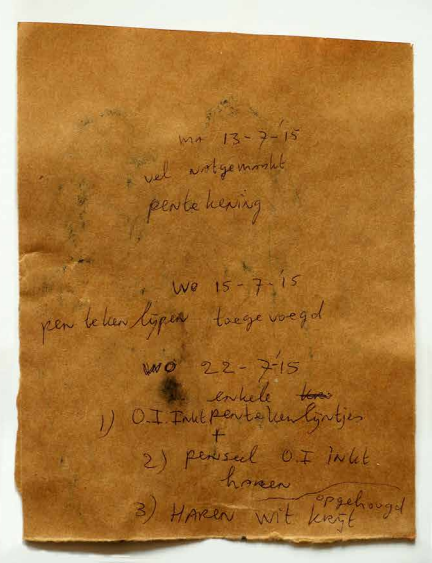 ma 13-7-'15
vel natgemaakt
pentekening
wo 15-7-'15
pen teken lijnen toegevoegd
WO 22-7-'15
enkele
1) O.I. Inkt pentekenlijntjes
+
2) penseel O.I Inkt
haren
opgehoogd
3) HAREN WIT krijt